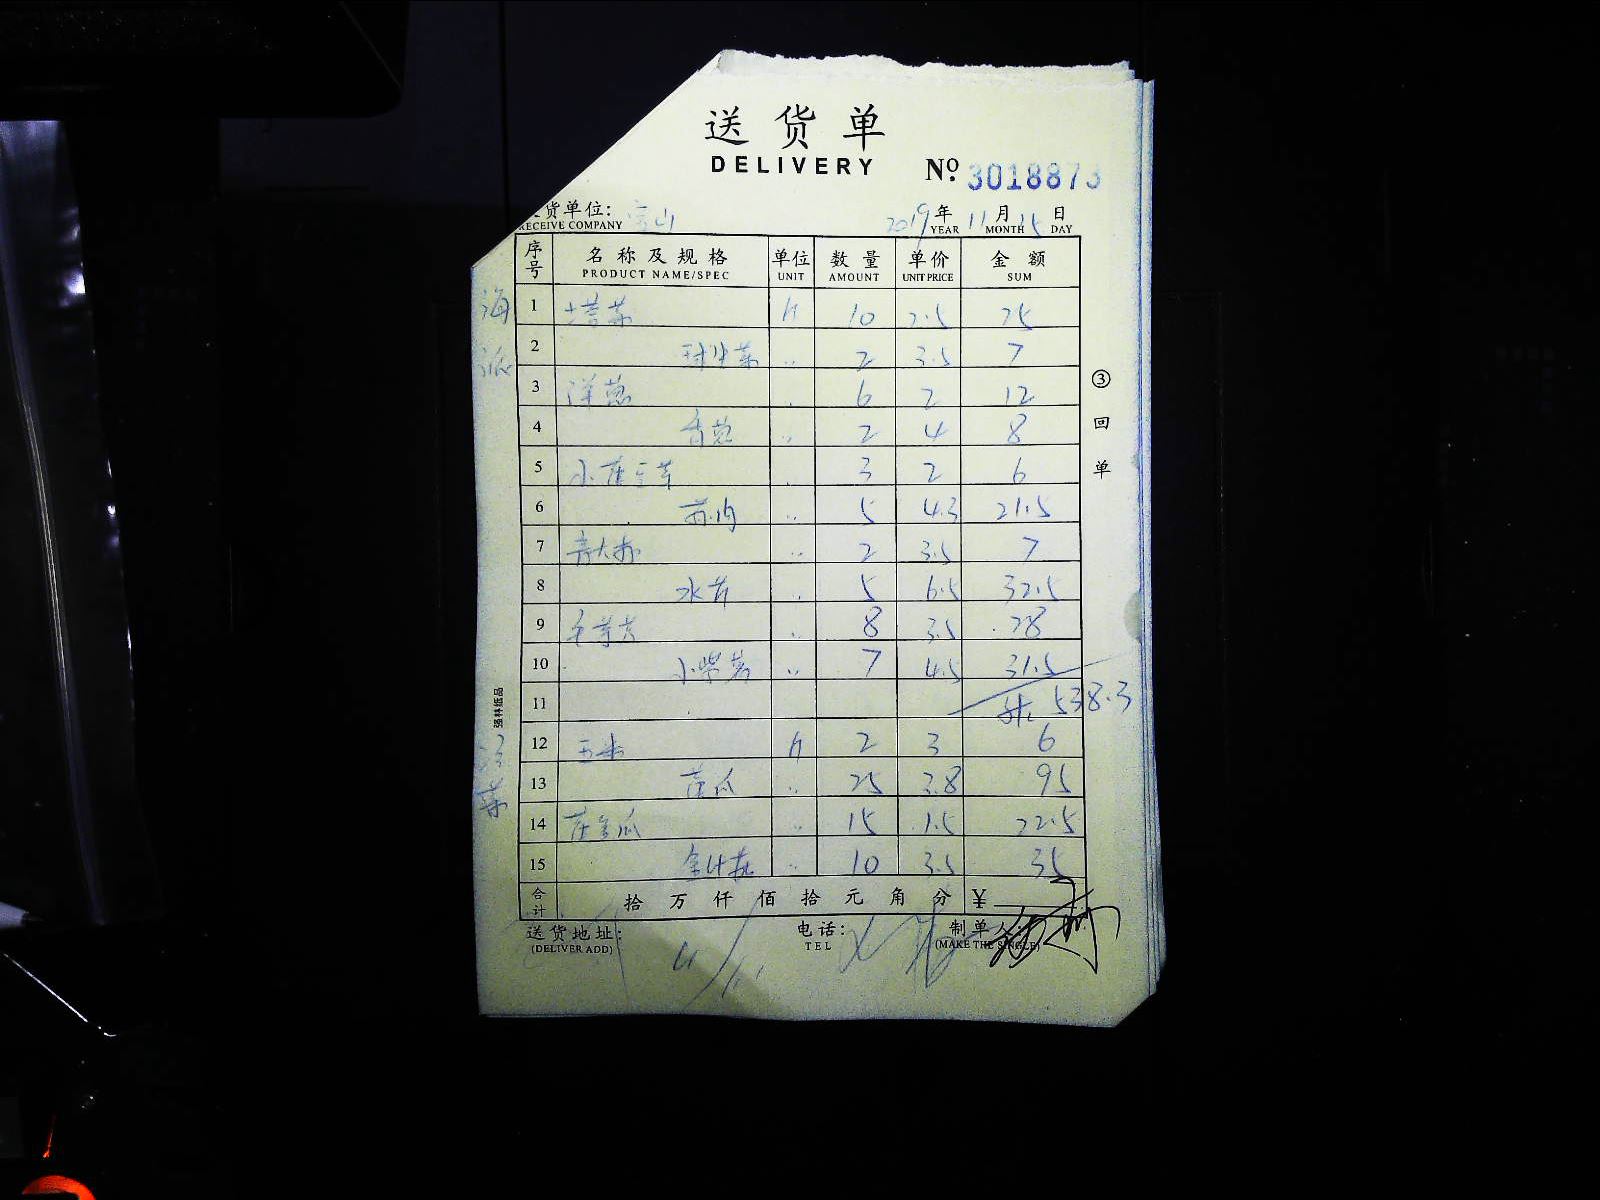 送货单
DELIVERY
№ 3018873
货单位: 宝山 2019年11月15日
RECEIVE COMPANY YEAR MONTH DAY
序号 名称及规格 单位 数量 单价 金额
PRODUCT NAME/SPEC UNIT AMOUNT UNIT PRICE SUM
海派
1 塔菜 斤 10 2.5 25
2 球生菜 〃 2 3.5 7
3 洋葱 6 2 12
4 香葱 〃 2 4 8
5 小黄豆芽 3 2 6
6 5 4.3 21.5
7 〃 2 3.5 7
8 水芹 5 6.5 32.5
9 毛芋艿 8 3.5 28
10 7 4.5 31.5
11 538.3
12 玉米 斤 2 3 6
13 黄瓜 〃 25 3.8 95
14 黄金瓜 〃 15 1.5 22.5
15 金针菇 〃 10 3.5 35
合计 拾 万 仟 佰 拾 元 角 分 ¥
送货地址: 电话: 制单人:
(DELIVER ADD) TEL (MAKE THE SINGLE)
③回单
强林纸品